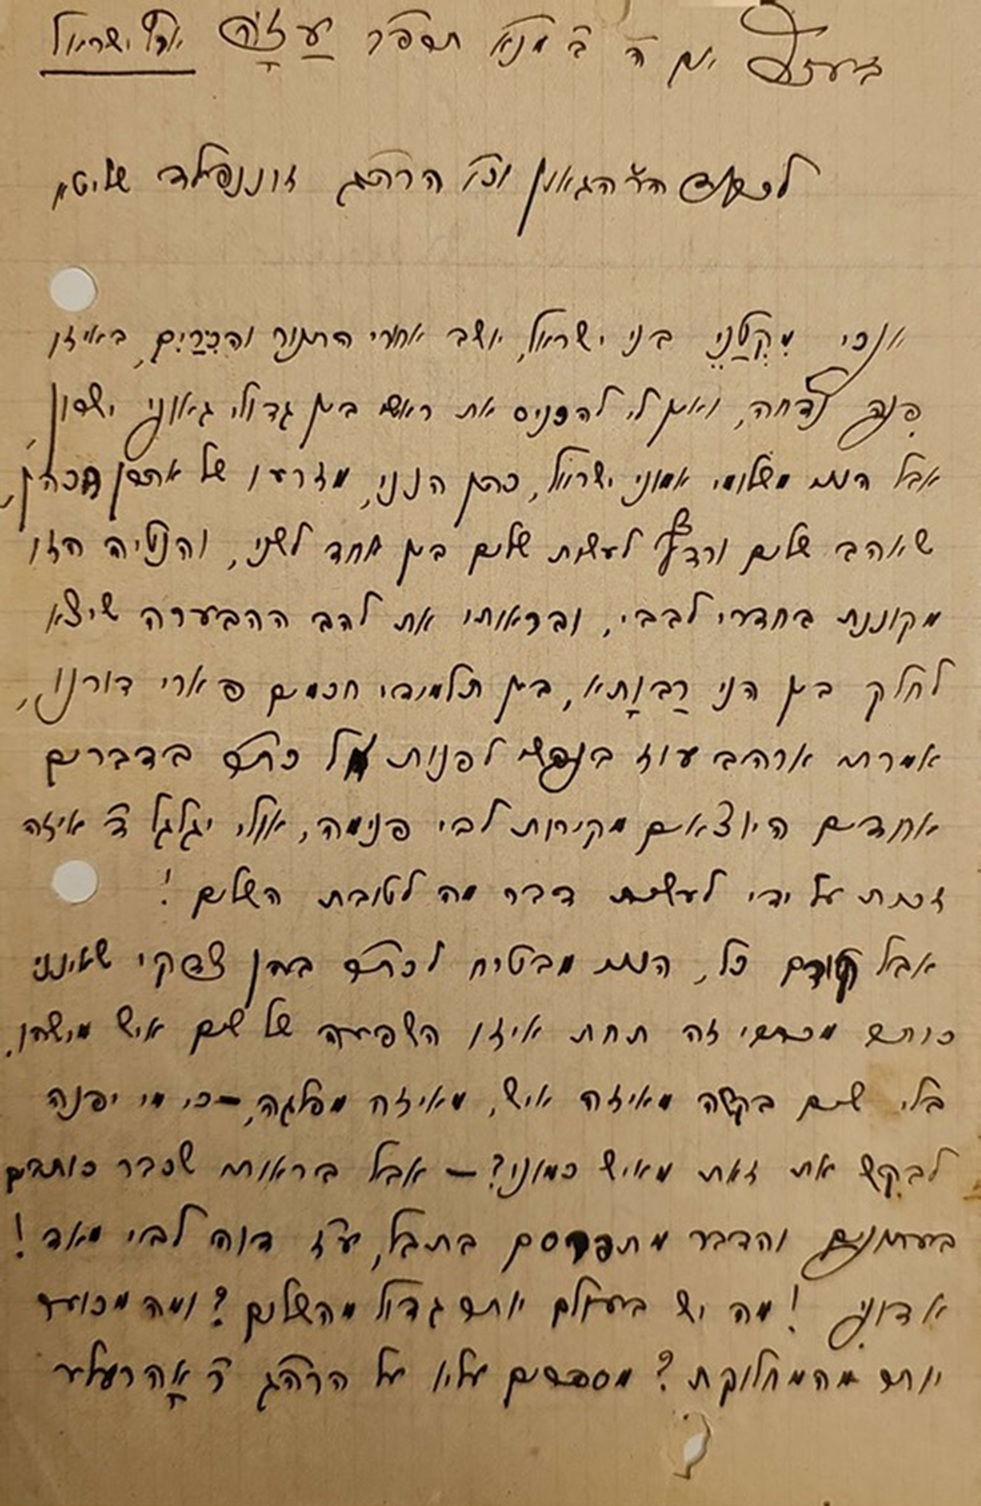 בעזה״י יום ה׳ ב׳ תספ״ר עַזָּה ארץ ישראל
לכבוד הרב הגאון וכו׳ הרה״ג זוננפעלד שליט״א
אנכי מִקְטַנֵי בני ישראל, יושב אחרי התנור והכִּרַיִם, באיזו
פנה נדחה, ואין לי להכניס את ראשי בין גדולי גאוני ישרון,
אבל הנני משלומי אמוני ישראל, כהן הנני, מזרעו של אהרן הכהן,
שאהב שלום ורדף לעשות שלום בין אחד לשני, והנטיה הזו
מקוננת בחדרי לבבי, ובראותי את להב ההבערה שיצא
לחלק בין הני רַבוָתא, בין תלמידי חכמים פארי דורנו,
אמרתי ארהיב עוז בנפשי לפנות אל כת״ר בדברים
אחדים היוצאים מקירות לבי פנימה, אולי יגלגל ד׳ איזה
זכות על ידי לעשות דבר מה לטובת השלום!
אבל קודם כל, הנני מבטיח לכת״ר בהן צדקי שאינני
כותב מכתבי זה תחת איזו השפעה של שום איש מישהו,
בלי שום בקשה מאיזה איש, מאיזה מפלגה, – כי מי יפנה
לבקש את זאת מאיש כמוני? – אבל בראותי שכבר כותבים
בעתונים והדבר מתפרסם בתבל, ע״ז דוה לבי מאד!
אדוני! מה יש בעולם יותר גדול מהשלום? ומה מכוער
יותר מהמחלוקת? מספרים עליו על הרה״ג ר׳ אָהרעלע